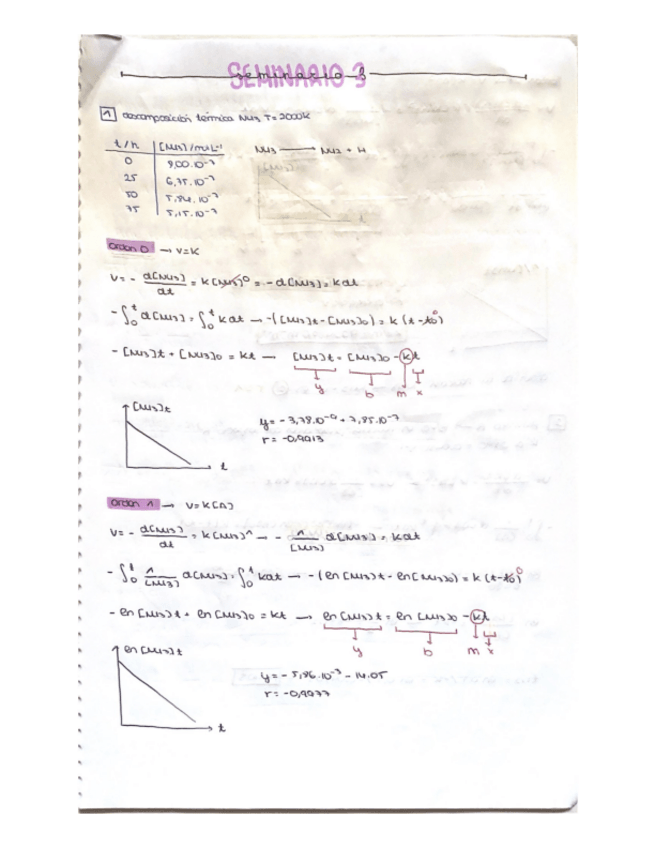 SEMINARIO 3
seminario 3
1 descomposición térmica NH3 T=2000K
t/h [NH3]/mol·L⁻¹ NH3 → NH2 + H
0 8,00·10⁻⁷
25 6,75·10⁻⁷
50 5,84·10⁻⁷
75 5,15·10⁻⁷
Orden 0 → v=k
v = - d[NH3]/dt = k[NH3]⁰ = -d[NH3] = k dt
-∫₀ᵗ d[NH3] = ∫₀ᵗ k dt → -([NH3]t - [NH3]0) = k (t-t0) 0
- [NH3]t + [NH3]0 = kt → [NH3]t = [NH3]0 - kt
y b m x
[NH3]t
y = -3,78·10⁻⁹ + 7,85·10⁻⁷
r = -0,9913
t
Orden 1 → v=k[A]
v = - d[NH3]/dt = k[NH3]¹ → - 1/[NH3] d[NH3] = k dt
-∫₀ᵗ 1/[NH3] d[NH3] = ∫₀ᵗ k dt → -(ln[NH3]t - ln[NH3]0) = k (t-t0) 0
- ln[NH3]t + ln[NH3]0 = kt → ln[NH3]t = ln[NH3]0 - kt
y b m x
ln[NH3]t
y = -5,86·10⁻³ - 14.05
r = -0,9977
t